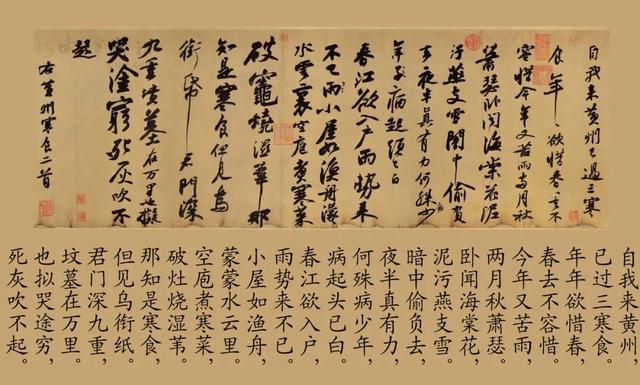 自我来黄州已過三寒
食年年欲惜春春去不
容惜今年又苦雨两月秋
蕭瑟卧闻海棠花泥
汙燕支雪闇中偷負
去夜半真有力何殊病少
年子病起頭已白
春江欲入户雨勢来
不已雨小屋如漁舟濛濛
水雲裏空庖煮寒菜
破竈燒濕葦那
知是寒食但見烏
銜帋君門深
九重墳墓在万里也擬
哭塗窮死灰吹不
起
右黄州寒食二首
自我来黄州，
已过三寒食。
年年欲惜春，
春去不容惜。
今年又苦雨，
两月秋萧瑟。
卧闻海棠花，
泥污燕支雪。
暗中偷负去，
夜半真有力，
何殊病少年，
病起头已白。
春江欲入户，
雨势来不已。
小屋如渔舟，
蒙蒙水云里。
空庖煮寒菜，
破灶烧湿苇。
那知是寒食，
但见乌衔纸。
君门深九重，
坟墓在万里。
也拟哭途穷，
死灰吹不起。